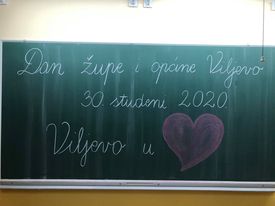 Dan župe i općine Viljevo
30. studeni 2020.
Viljevo u